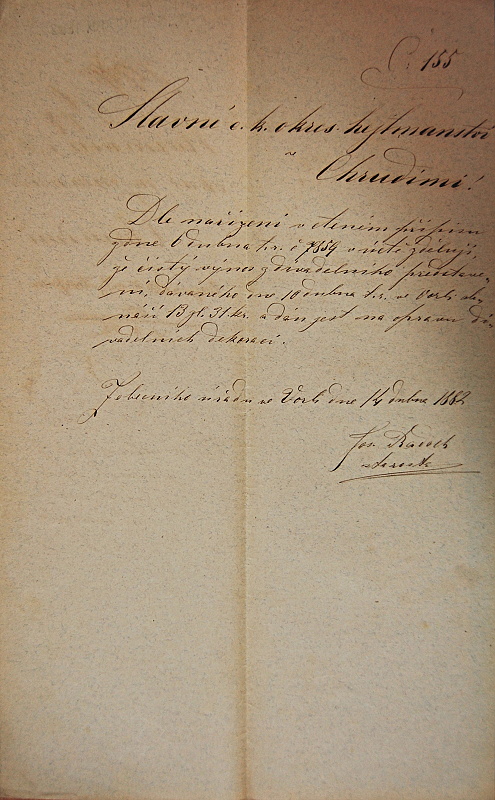 Č. 155
Slavné c. k. okres. hejtmanství
v
Chrudimi!
Dle nařízení v cteném přípisu
ze dne 6 dubna t.r. č 7559 v úctě sděluji,
že čistý výnos z divadelního představe-
ní, dávaného dne 10 dubna t.r. ve Vorli ob-
náší 13 zl. 31 kr. a dán jest na opravu di-
vadelních dekorací.
Z obecního úřadu ve Vorli dne 14 dubna 1882
Jos.
starosta